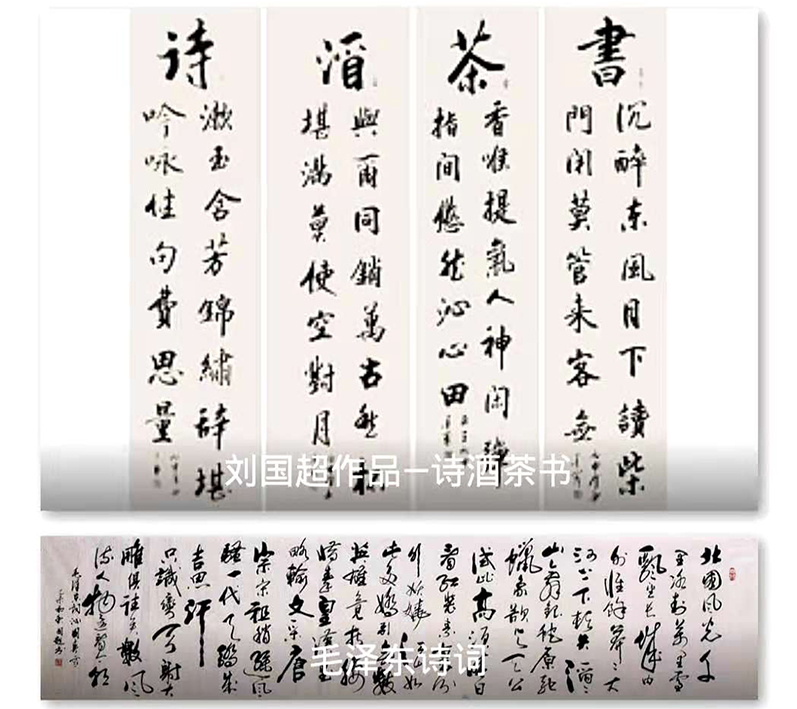 書
沉醉东風月下讀柴
門闲莫管来客無
茶
香唯提氣人神闲
指间悠然沁心田
酒
與爾同銷萬古愁
堪满莫使空對月
诗
漱玉含芳錦繡辞堪
吟咏佳句費思量
刘国超作品—诗酒茶书
北國风光千
里冰封万里雪
飘望长城内
外惟馀莽莽大
河上下顿失滔滔
山舞银蛇原驰
蜡象欲与天公
试比高须晴日
看红装素裹分
外妖娆江山如
此多娇引无数
英雄竞折腰
惜秦皇漢武
略输文采唐
宗宋祖稍逊风
骚一代天骄成
吉思汗
只識弯弓射大
雕俱往矣数风
流人物还看今朝
毛泽东诗词